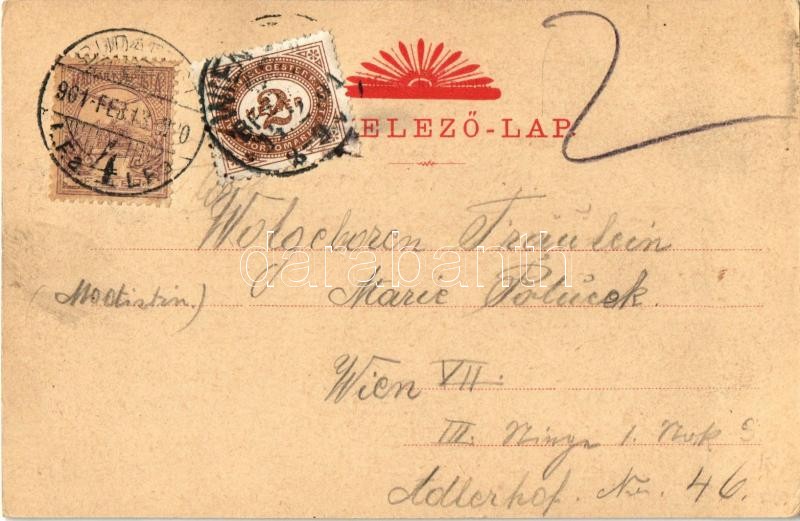 901 FEB 13
4
2
2
ELEZŐ-LAP.
Wolgeboren Fräulein
Marie Polucek.
(Modistin.)
Wien VII.
III.
Adlerhof. Nr. 46.
darabanth